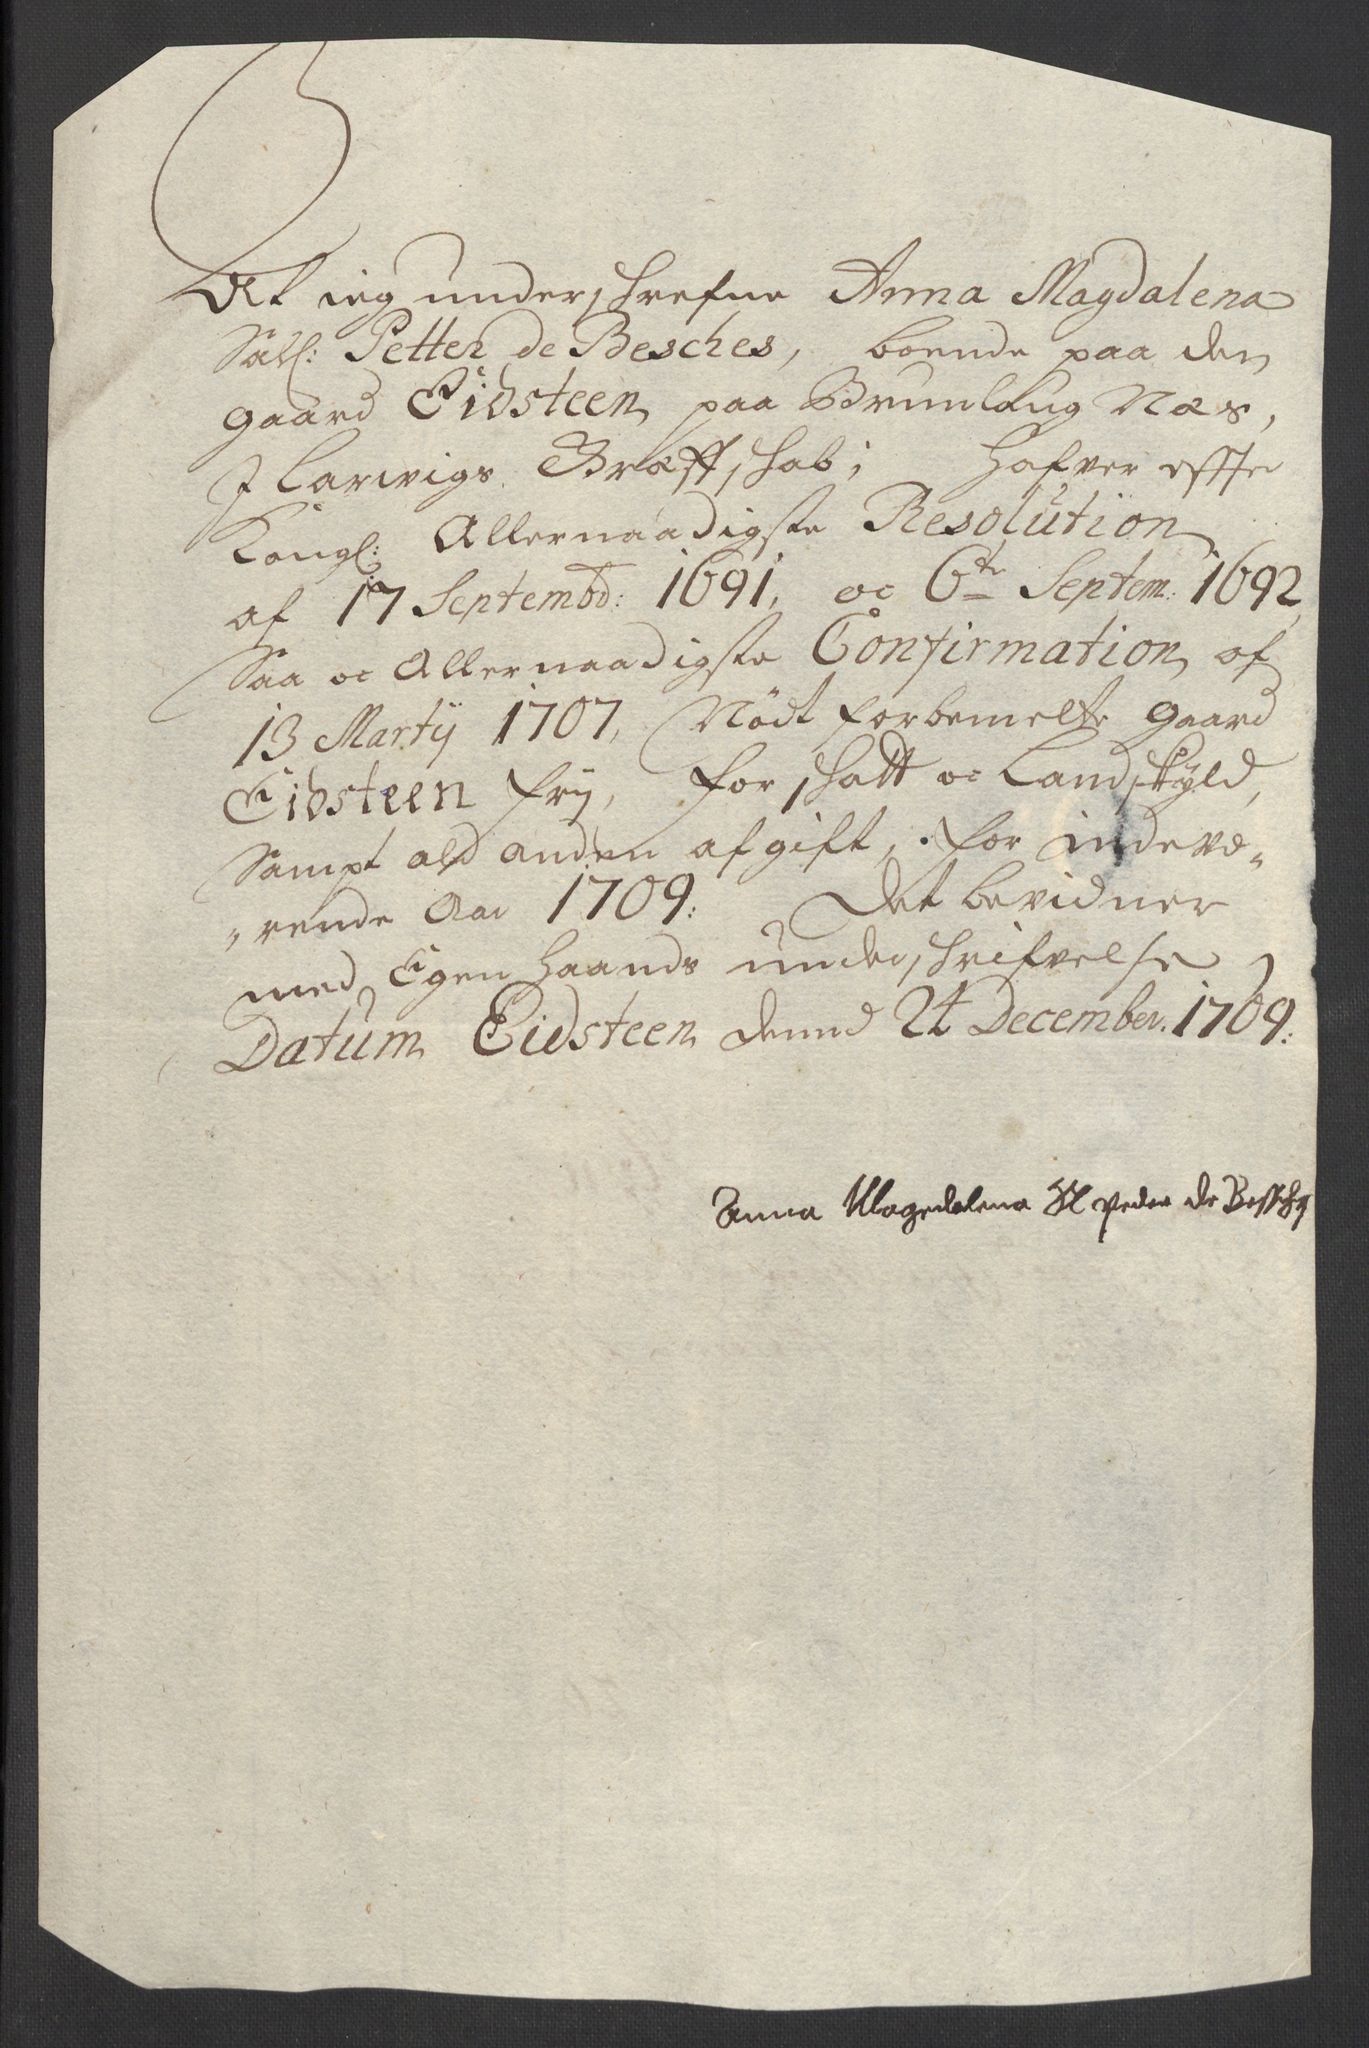 At ieg underschrefne Anna Magdalena
Sall: Petter de Besches, boende paa den
gaard Eidsteen paa Brunlaug Næs,
J Larwigs Græffschab; Hafver effter
Kongl: Allernaadigste Resolution
af 17 Septembr: 1691, oc 6te Septem: 1692,
Saa oc Allernaadigste Confirmation af
13 Martij 1707, Nödt forbemelte gaard
Eidsteen frij, for schatt oc Landskyld,
Sampt ald anden afgift, for indevæ„
„rende Aar 1709: Det bevidner
med Egen haands underschrifvelse
Datum Eidsteen dennd 24 December. 1709:
Anna Magedalena Sl peder de Bessche